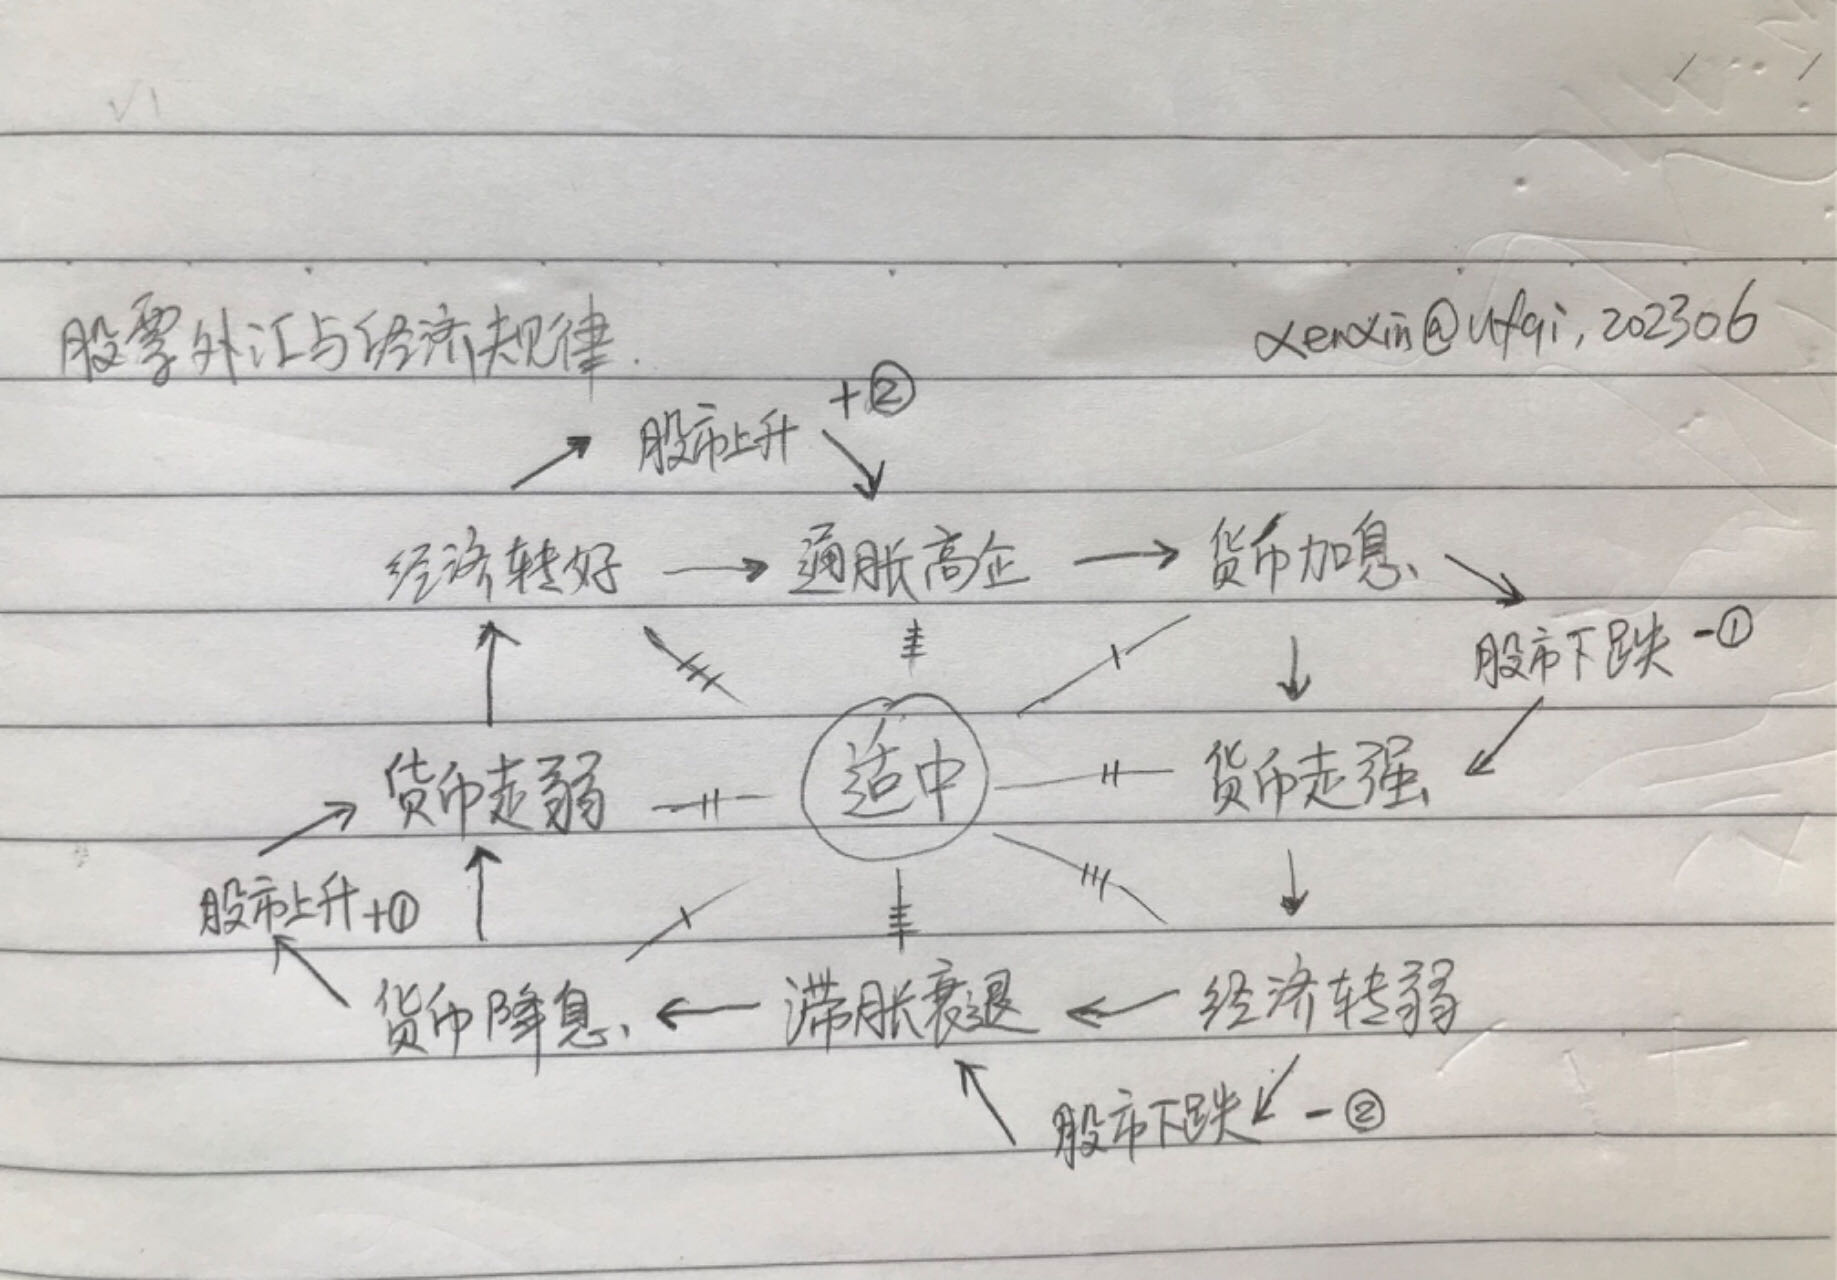 股票外汇与经济规律.
xenxin@ufqi, 202306
股市上升 +②
经济转好 → 通胀高企 → 货币加息
股市下跌 -①
货币走弱 适中 货币走强
股市上升 +①
货币降息 ← 滞胀衰退 ← 经济转弱
股市下跌 -②